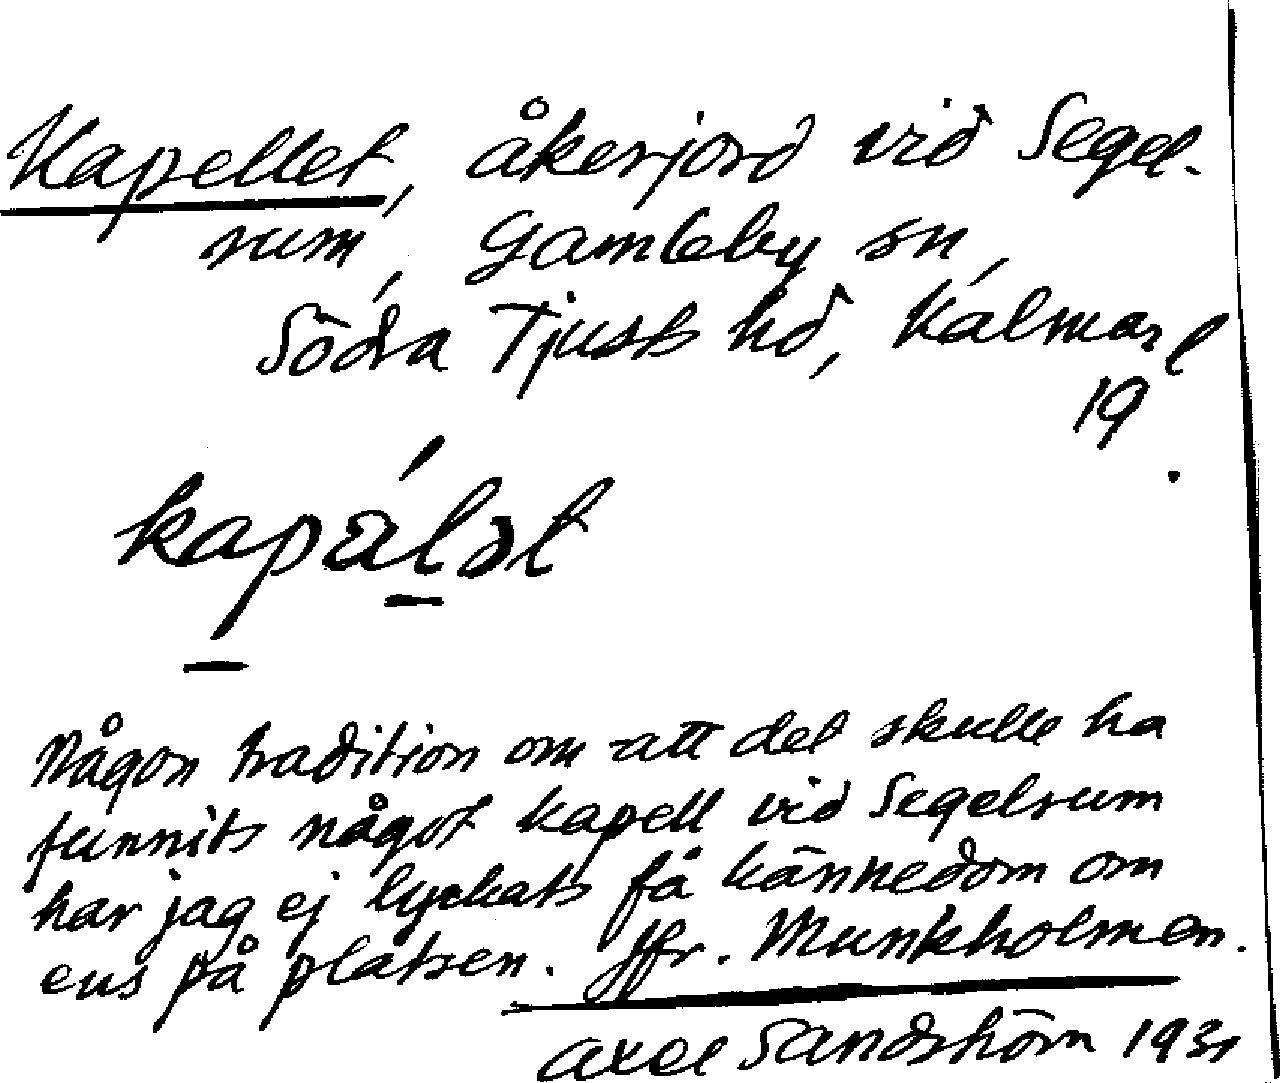 Kapellet, åkerjord vid Segel-
rum, Gamleby sn,
Södra Tjusts hd, Kalmar l
19.
kapä́lət
Någon tradition om att det skulle ha
funnits något kapell vid Segelrum
har jag ej lyckats få kännedom om
ens på platsen. Jfr. Munkholmen.
Axel Sandström 1931